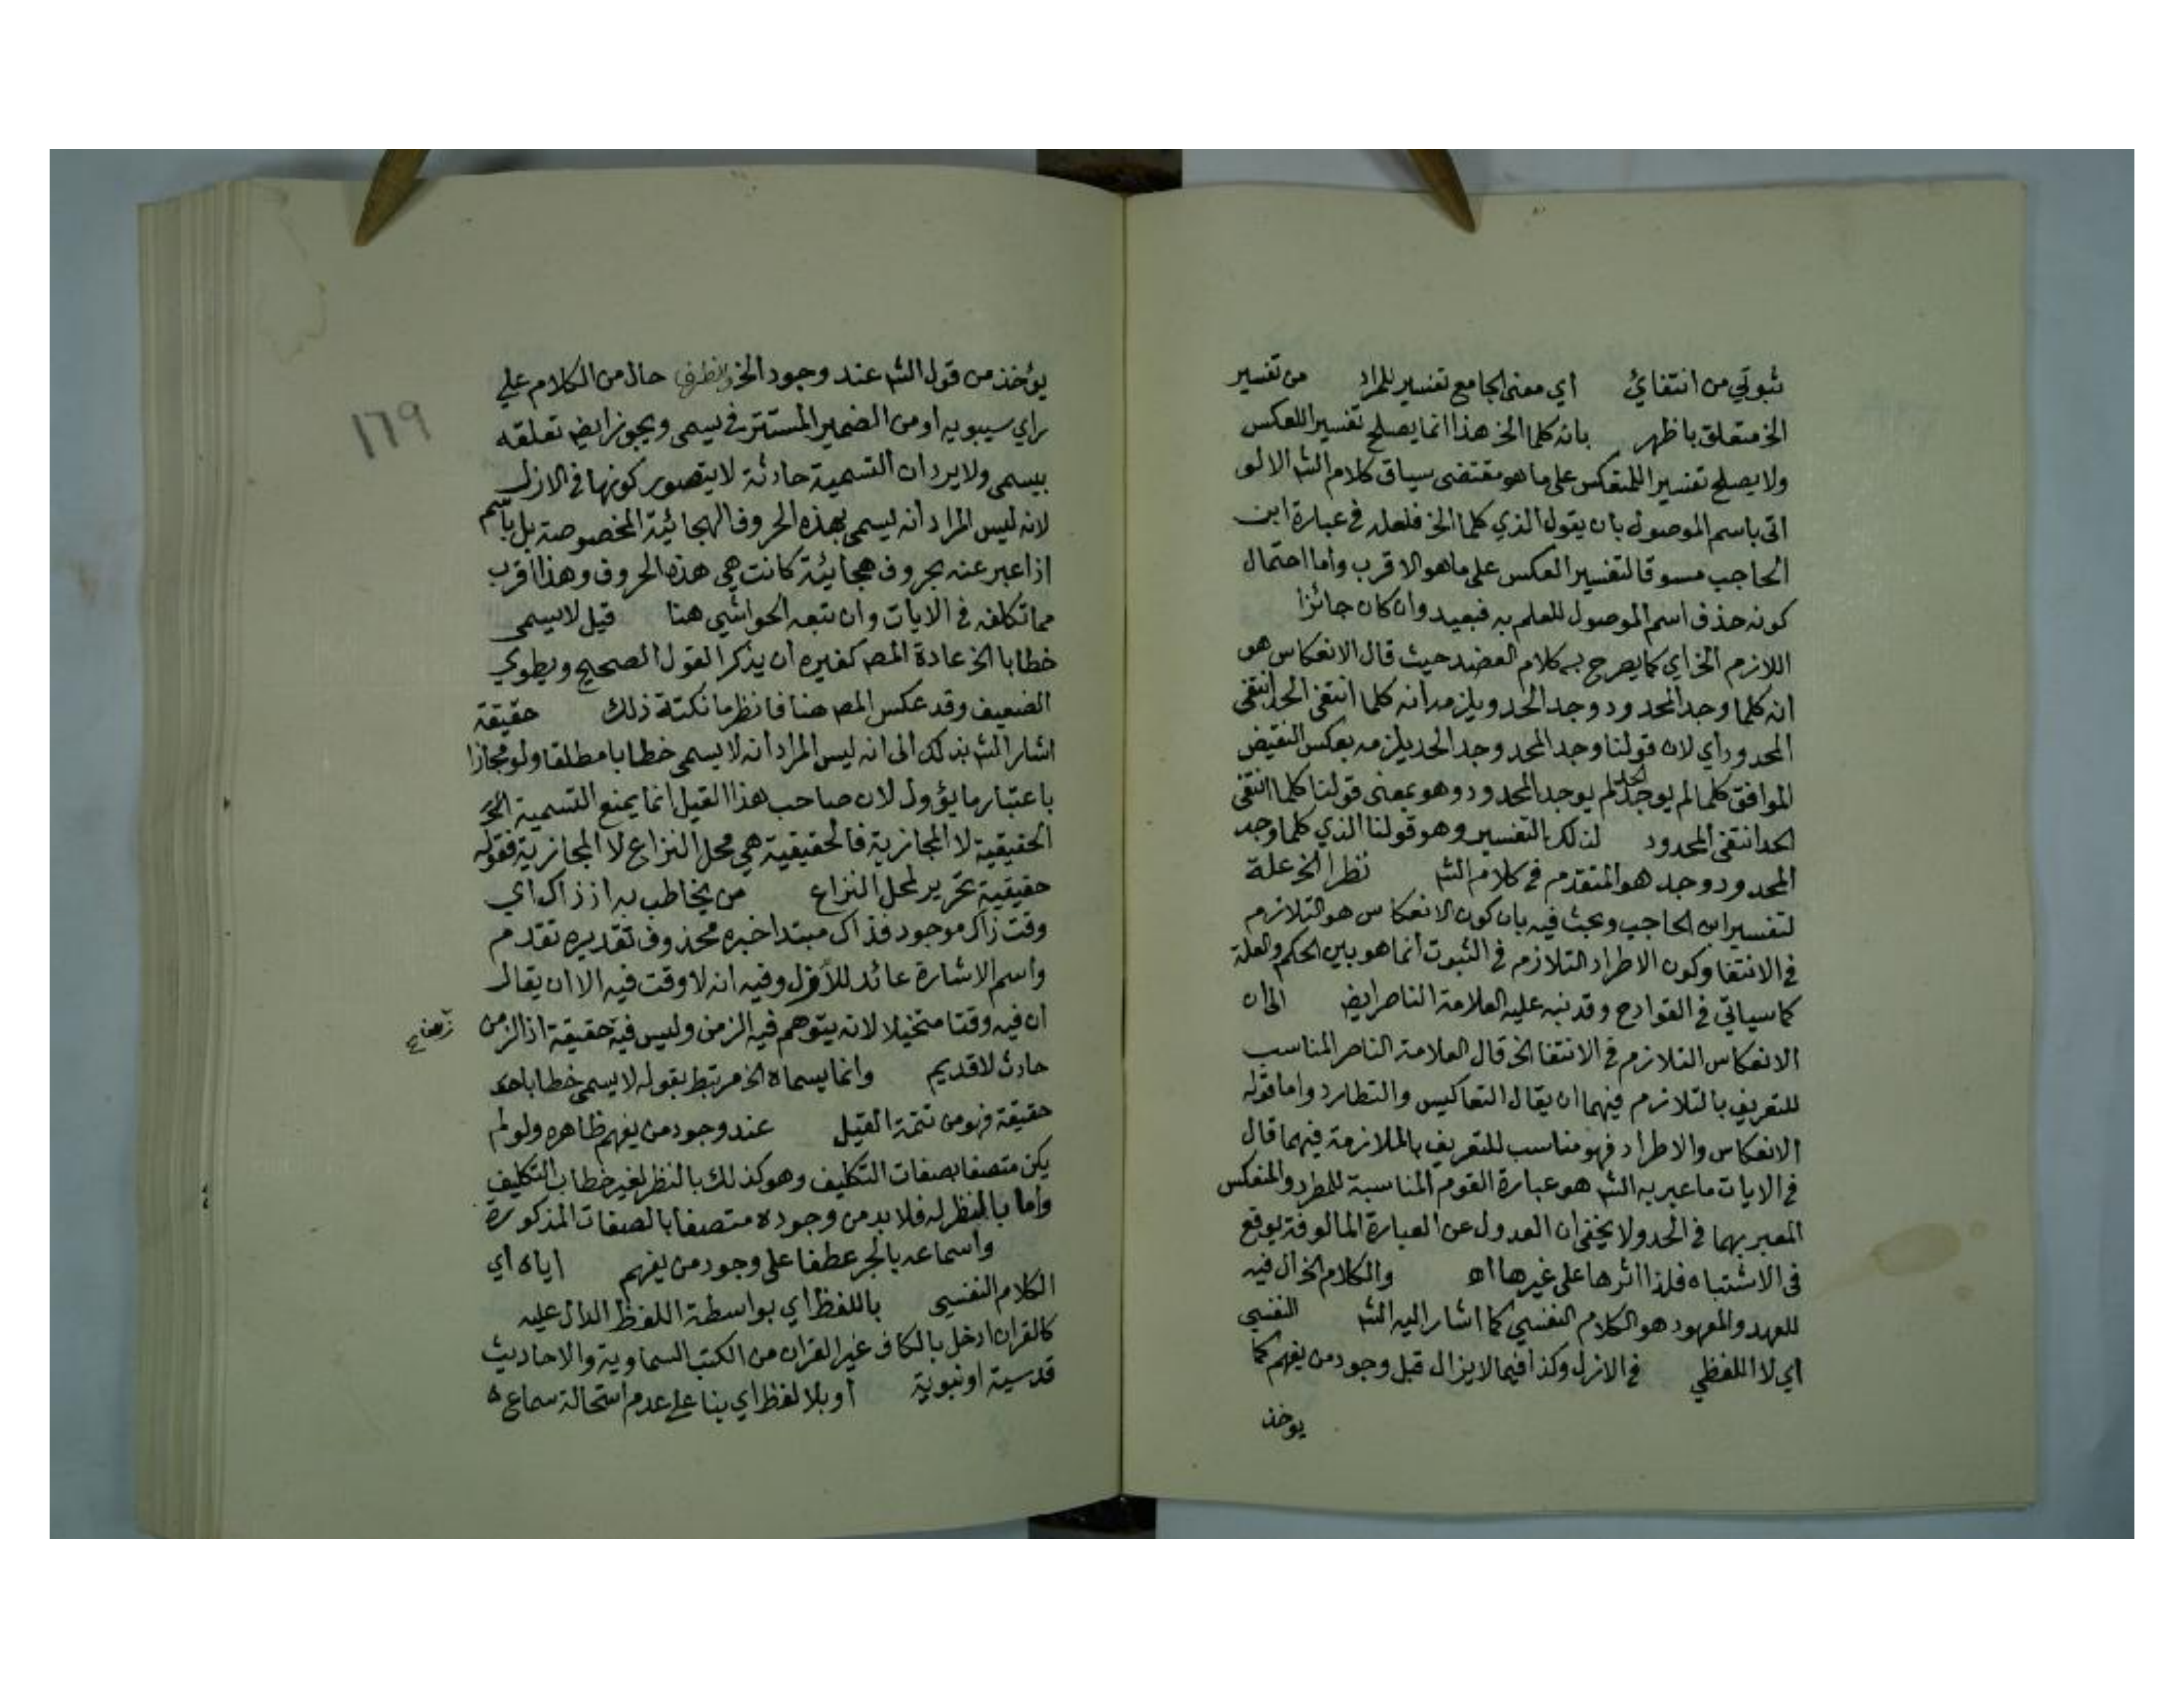 ثبوتي من انتفائي اي معنى الجامع تفسير للمراد من تفسير
الخ متعلق باظهر بانه كلما الخ هذا انما يصلح تفسيرا للعكس
ولا يصلح تفسيرا للمنعكس على ما هو مقتضى سياق كلام الش الا لو
اتى باسم الموصول بان يقول الذي كلما الخ فلعله في عبارة ابن
الحاجب مسوقا لتفسير العكس على ما هو الاقرب واما احتمال
كونه حذف اسم الموصول للعلم به فبعيد وان كان جائزا
اللازم الخ اي كما يصرح به كلام العضد حيث قال الانعكاس هو
انه كلما وجد المحدود وجد الحد ويلزمه انه كلما انتفى الحد انتفى
المحدود اي لان قولنا وجد المحدود وجد الحد يلزمه بعكس النقيض
الموافق كلما لم يوجد الحد لم يوجد المحدود وهو بمعنى قولنا كلما انتفى
الحد انتفى المحدود لذلك التفسير وهو قولنا الذي كلما وجد
المحدود وجد هو المتقدم في كلام الش نظرا الخ علة
لتفسير ابن الحاجب وبحث فيه بان كون الانعكاس هو التلازم
في الانتفا وكون الاطراد التلازم في الثبوت انما هو بين الحكم والعلة
كما سياتي في القوادح وقد نبه عليه العلامة الناصر ايض الى ان
الانعكاس التلازم في الانتفا الخ قال العلامة الناصر المناسب
للتعريف بالتلازم فيهما ان يقال التعاكس والتطارد واما قوله
الانعكاس والاطراد فهو مناسب للتعريف بالملازمة فيهما قال
في الايات ما عبر به الش هو عبارة القوم المناسبة للمطرد والمنعكس
المعبر بهما في الحد ولا يخفى ان العدول عن العبارة المالوفة يوقع
في الاشتباه فلذا اثرها على غيرها اه والكلام الخ ال فيه
للعهد والمعهود هو الكلام النفسي كما اشار اليه الش النفسي
اي لا اللفظي في الازل وكذا فيما لا يزال قبل وجود من يفهم كما
يوخذ
يؤخذ من قول الش عند وجود الخ حال من الكلام على
راي سيبويه او من الضمير المستتر في يسمى ويجوز ايض تعلقه
بيسمى ولا يرد ان التسمية حادثة لا يتصور كونها في الازل
لانه ليس المراد انه ليسمى بهذه الحروف الهجائية المخصوصة بل باسم
اذا عبر عنه بحروف هجائية كانت هي هذه الحروف وهذا اقرب
مما تكلفه في الايات وان تبعه الحواشي هنا قيل لا يسمى
خطابا الخ عادة المص كغيره ان يذكر القول الصحيح ويطوي
الضعيف وقد عكس المص هنا فانظر ما نكتة ذلك حقيقة
اشار الش بذلك الى انه ليس المراد انه لا يسمى خطابا مطلقا ولو مجازا
باعتبار ما يؤول لان صاحب هذا القيل انما يمنع التسمية
الحقيقية لا المجازية فالحقيقية هي محل النزاع لا المجازية فقوله
حقيقية تحرير لمحل النزاع من يخاطب به اذ ذاك اي
وقت ذاك موجود فذاك مبتدا خبره محذوف تقديره تقدم
واسم الاشارة عائد للأزل وفيه انه لا وقت فيه الا ان يقال
ان فيه وقتا متخيلا لانه يتوهم فيه الزمن وليس فيه حقيقة اذ الزمن
حادث لا قديم وانما يسماه الخ مرتبط بقوله لا يسمى خطابا
حقيقة فهو من تتمة القيل عند وجود من يفهم ظاهره ولو لم
يكن متصفا بصفات التكليف وهو كذلك بالنظر لغير خطاب التكليف
واما بالنظر له فلا بد من وجوده متصفا بالصفات المذكورة
واسماعه بالجر عطفا على وجود من يفهم اياه اي
الكلام النفسي باللفظ اي بواسطة اللفظ الدال عليه
كالقران ادخل بالكاف غير القران من الكتب السماوية والاحاديث
قدسية او نبوية او بلا لفظ اي بنا على عدم استحالة سماعه
١٦٩